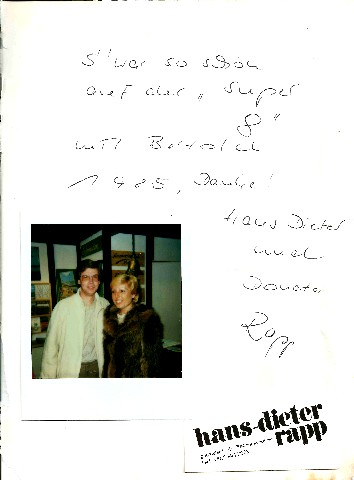 S'war so schön
auf der „Super
8"
mit
1985, Danke!
Hans Dieter
und
Donata
Rapp
hans-dieter
rapp